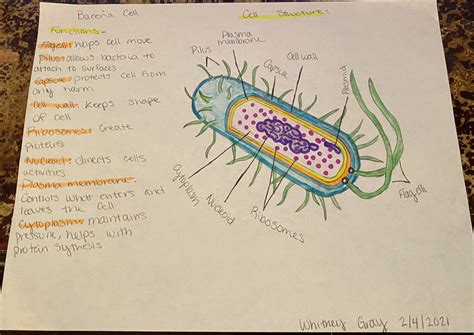 Bacteria Cell
Cell Structure:
Functions -
Flagella: helps cell move
Pilus: allows bacteria to
attach to surfaces
Capsule: protects cell from
any harm
Cell wall: Keeps shape
of cell
Ribosomes: Create
proteins
Nucleoid: directs cells
activities
Plasma membrane:
Controls what enters and
leaves the cell
Cytoplasm: maintains
pressure, helps with
protein sythesis
Pilus
Plasma
membrane
Capsule
Cell wall
Plasmid
Cytoplasm
Nucleoid
Ribosomes
Flagelli
Whitney Gray 2/4/2021